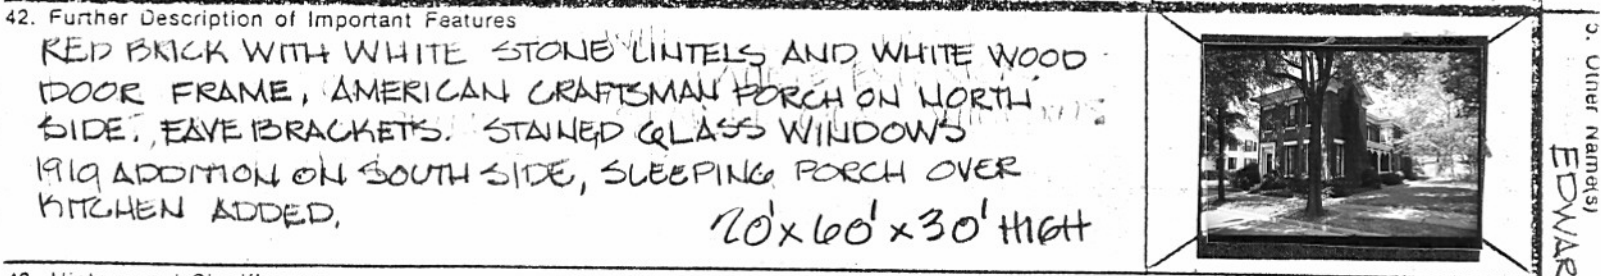 42. Further Description of Important Features
RED BRICK WITH WHITE STONE LINTELS AND WHITE WOOD
DOOR FRAME, AMERICAN CRAFTSMAN PORCH ON NORTH
SIDE. EAVE BRACKETS. STAINED GLASS WINDOWS
1919 ADDITION ON SOUTH SIDE, SLEEPING PORCH OVER
KITCHEN ADDED.
20'x60'x30' HIGH
5. Other Name(s)
EDWAR